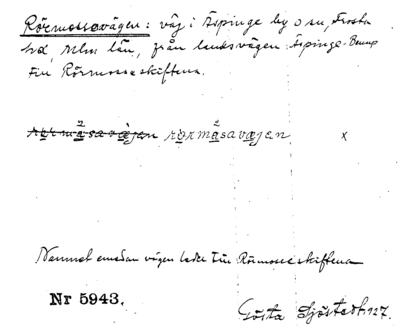 Rörmossavägen: väg i Äspinge by o sn, Frosta
hd, Mlm län, från landsvägen Äspinge-
till Rörmosseskiftena.
rormåsavajen rormåsavæjen x
Namnet emedan vägen leder till Rörmosseskiftena
Nr 5943.
Gösta Sjöstedt 127.